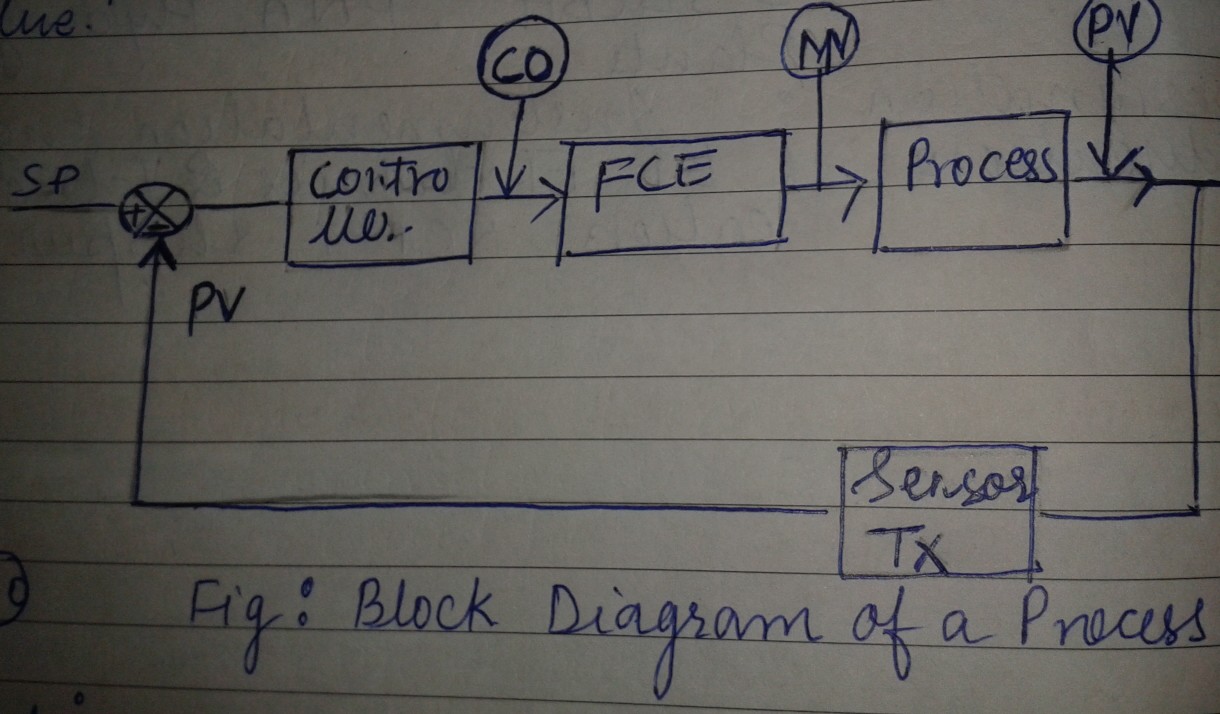 lue.
CO
MV
PV
SP
+
-
Contro
ller.
FCE
Process
PV
Sensor
Tx
Fig: Block Diagram of a Process